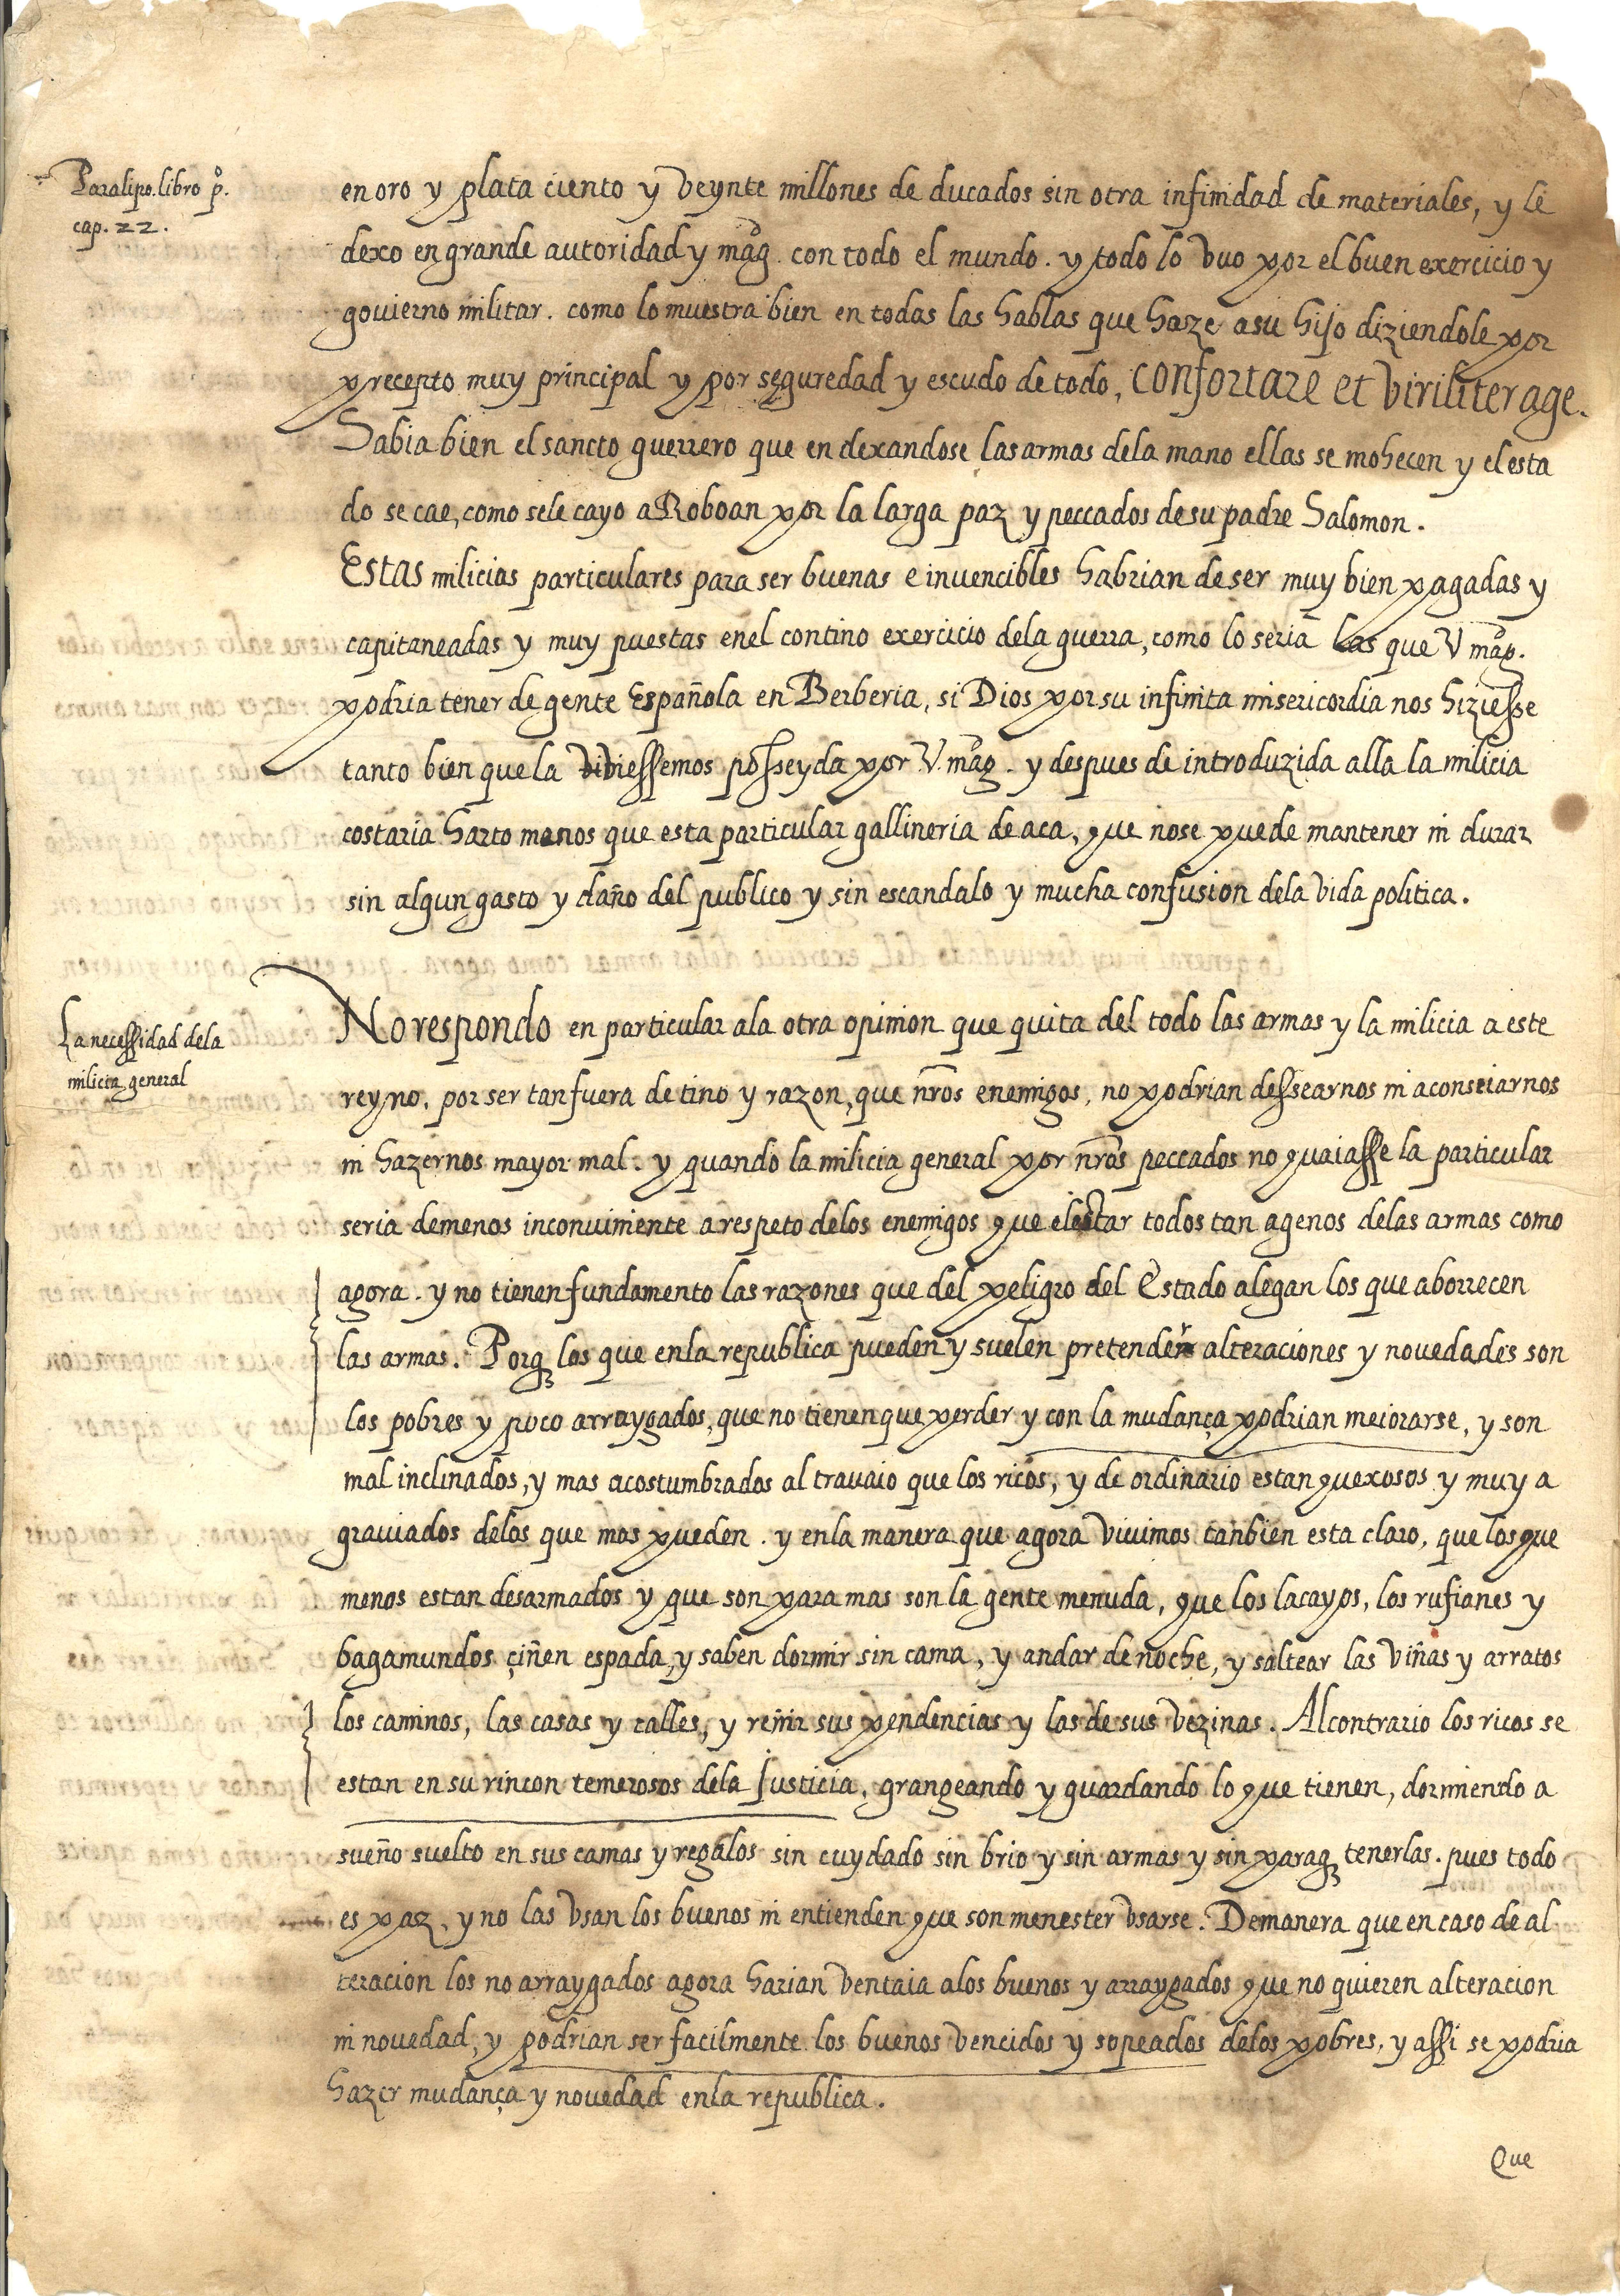 Paralipo. libro p.º
cap. 22.
en oro y plata ciento y veynte millones de ducados sin otra infinidad de materiales, y le
dexo en grande autoridad y mag.ᵈ con todo el mundo. y todo lo vuo por el buen exercicio y
gouierno militar. como lo muestra bien en todas las hablas que haze a su hijo diziendole por
precepto muy principal y por seguredad y escudo de todo, confortare et viriliter age.
Sabia bien el sancto guerrero que en dexandose las armas dela mano ellas se mohecen y el esta
do se cae, como sele cayo a Roboan por la larga paz y peccados de su padre Salomon.
Estas milicias particulares para ser buenas e inuencibles habrian de ser muy bien pagadas y
capitaneadas y muy puestas enel contino exercicio dela guerra, como lo seria las que V mag.ᵈ
podria tener de gente Española en Berberia, si Dios por su infinita misericordia nos hiziesse
tanto bien que la vidiessemos posseyda por V. mag.ᵈ y despues de introduzida alla la milicia
costaria harto menos que esta particular gallineria de aca, que nose puede mantener ni durar
sin algun gasto y daño del publico y sin escandalo y mucha confusion dela vida politica.
La necessidad dela
milicia general
No respondo en particular ala otra opinion que quita del todo las armas y la milicia a este
reyno, por ser tan fuera de tino y razon, que nr̃os enemigos, no podrian dessearnos ni aconseiarnos
ni hazernos mayor mal. y quando la milicia general por nr̃os peccados no quaiasse la particular
seria de menos inconuiniente a respeto delos enemigos que el estar todos tan agenos delas armas como
agora. y no tienen fundamento las razones que del peligro del Estado alegan los que aborrecen
las armas. Porq̃ los que enla republica pueden y suelen pretender alteraciones y nouedades son
los pobres y poco arraygados, que no tienen que perder y con la mudança podrian meiorarse, y son
mal inclinados, y mas acostumbrados al travaio que los ricos, y de ordinario estan quexosos y muy a
grauiados delos que mas pueden. y enla manera que agora viuimos tanbien esta claro, que los que
menos estan desarmados y que son para mas son la gente menuda, que los lacayos, los rufianes y
bagamundos çiñen espada, y saben dormir sin cama, y andar de noche, y saltear las viñas y arratos
los caminos, las casas y calles, y reñir sus pendencias y las de sus vezinas. Al contrario los ricos se
estan en su rincon temerosos dela Justicia, grangeando y guardando lo que tienen, dormiendo a
sueño suelto en sus camas y regalos sin cuydado sin brio y sin armas y sin paraq̃ tenerlas. pues todo
es paz, y no las vsan los buenos ni entienden que son menester vsarse. De manera que en caso de al
teracion los no arraygados agora harian ventaia alos buenos y arraygados que no quieren alteracion
ni nouedad, y podrian ser facilmente los buenos vencidos y sopeados delos pobres, y assi se podria
hazer mudança y nouedad enla republica.
Que